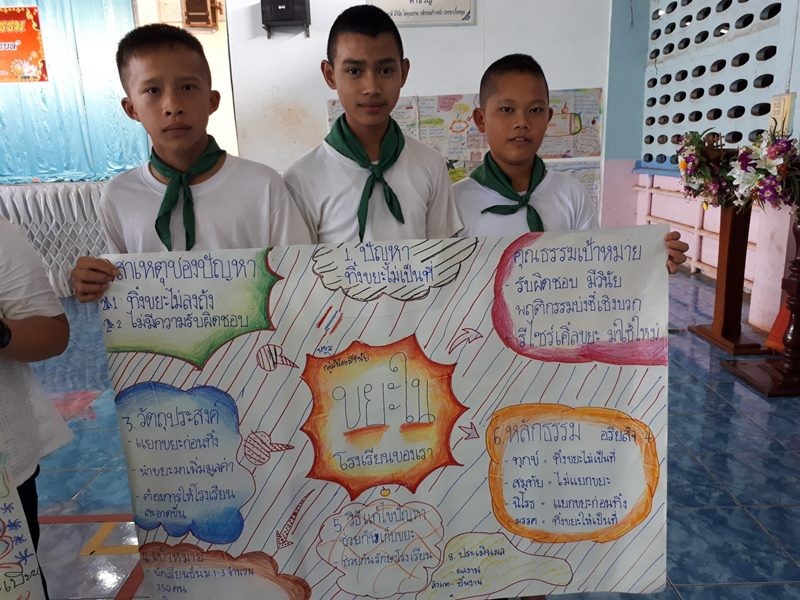 สาเหตุของปัญหา
1 ทิ้งขยะไม่ลงถัง
2 ไม่มีความรับผิดชอบ
1 ปัญหา
- ทิ้งขยะไม่เป็นที่
คุณธรรมเป้าหมาย
- รับผิดชอบ มีวินัย
พฤติกรรมบ่งชี้เชิงบวก
- รีไซร์เคิ้ลขยะ มาใช้ใหม่
ขยะใน
โรงเรียนของเรา
3. วัตถุประสงค์
- แยกขยะก่อนทิ้ง
- นำขยะมาเพิ่มมูลค่า
- ต้องการให้โรงเรียน
สะอาดขึ้น
6 หลักธรรม อริยสัจ 4
- ทุกข์ = ทิ้งขยะไม่เป็นที่
- สมุทัย = ไม่แยกขยะ
- นิโรธ = แยกขยะก่อนทิ้ง
- มรรค = ทิ้งขยะให้เป็นที่
5. วิธีแก้ไขปัญหา
ช่วยกันเก็บขยะ
ช่วยกันรักษาโรงเรียน
4 เป้าหมาย
- นักเรียนชั้นม.1-3 จำนวน
250 คน
8. ประเมินผล
- ผลงาน
- ชิ้นงาน